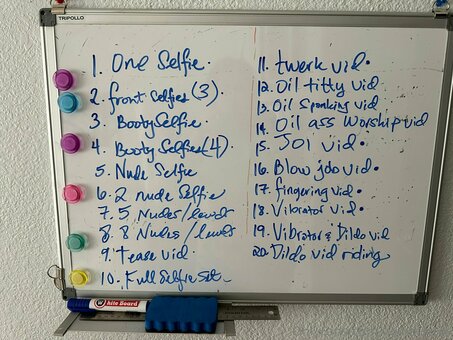 TRIPOLLO
1. One Selfie.
2. front selfies (3)
3. Booty Selfie.
4. Booty Selfies (4)
5. Nude Selfie
6. 2 nude Selfie
7. 5 Nudes/lewds
8. 8 Nudes/lewds
9. tease vid.
10. Full Selfie Set.
11. twerk vid.
12. Oil titty vid
13. Oil Spanking vid
14. Oil ass Worship vid
15. JOI vid.
16. Blow jdo vid.
17. fingering vid.
18. Vibrator vid.
19. Vibrator & Dildo vid
20. Dildo vid riding
White Board